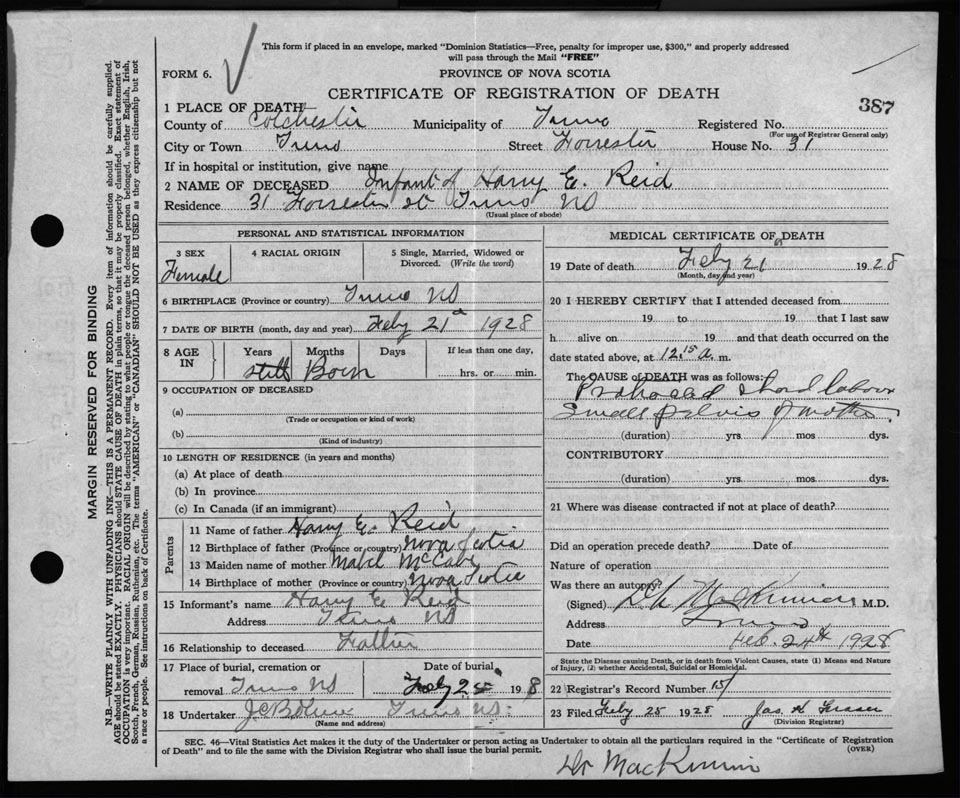 This form if placed in an envelope, marked "Dominion Statistics—Free, penalty for improper use, $300," and properly addressed
will pass through the Mail "FREE"
FORM 6.
PROVINCE OF NOVA SCOTIA
CERTIFICATE OF REGISTRATION OF DEATH
387
1 PLACE OF DEATH
County of Colchester Municipality of Truro Registered No.
(For use of Registrar General only)
City or Town Truro Street Forrester House No. 31
If in hospital or institution, give name
2 NAME OF DECEASED Infant of Harry E. Reid
Residence 31 Forrester St Truro NS
(Usual place of abode)
PERSONAL AND STATISTICAL INFORMATION
3 SEX 4 RACIAL ORIGIN 5 Single, Married, Widowed or
Divorced. (Write the word)
Female
6 BIRTHPLACE (Province or country) Truro NS
7 DATE OF BIRTH (month, day and year) Feby 21st 1928
8 AGE IN Years Months Days If less than one day,
Still Born hrs. or min.
9 OCCUPATION OF DECEASED
(a)
(Trade or occupation or kind of work)
(b)
(Kind of industry)
10 LENGTH OF RESIDENCE (in years and months)
(a) At place of death
(b) In province
(c) In Canada (if an immigrant)
Parents
11 Name of father Harry E. Reid
12 Birthplace of father (Province or country) Nova Scotia
13 Maiden name of mother Mabel McCabe
14 Birthplace of mother (Province or country) Nova Scotia
15 Informant's name Harry E Reid
Address Truro NS
16 Relationship to deceased Father
17 Place of burial, cremation or Date of burial
removal Truro NS Feby 25 1928
18 Undertaker Truro NS.
(Name and address)
MEDICAL CERTIFICATE OF DEATH
19 Date of death Feby 21 1928
(Month, day and year)
20 I HEREBY CERTIFY that I attended deceased from
19 to 19 that I last saw
h alive on 19 and that death occurred on the
date stated above, at 12.15 a. m.
The CAUSE of DEATH was as follows:
hard labour
Small pelvis of mother.
(duration) yrs. mos dys.
CONTRIBUTORY
(duration) yrs. mos. dys.
21 Where was disease contracted if not at place of death?
Did an operation precede death? Date of
Nature of operation
Was there an autopsy?
(Signed) MacKinnon M.D.
Address Truro
Date Feb. 24th 1928
State the Disease causing Death, or in death from Violent Causes, state (1) Means and Nature
of Injury, (2) whether Accidental, Suicidal or Homicidal.
22 Registrar's Record Number 151
23 Filed Feby 25 1928 Jas. H Fraser
(Division Registrar)
SEC. 46—Vital Statistics Act makes it the duty of the Undertaker or person acting as Undertaker to obtain all the particulars required in the "Certificate of Registration
of Death" and to file the same with the Division Registrar who shall issue the burial permit. (OVER)
Dr MacKinnon
MARGIN RESERVED FOR BINDING
N.B.—WRITE PLAINLY WITH UNFADING INK—THIS IS A PERMANENT RECORD. Every item of information should be carefully supplied.
AGE should be stated EXACTLY. PHYSICIANS should STATE CAUSE OF DEATH in plain terms, so that it may be properly classified. Exact statement of
OCCUPATION is very important. RACIAL ORIGIN will be described by stating to what people or tongue the deceased person belonged, whether English, Irish,
Scotch, French, German, Russian, Ruthenian, etc. The terms "AMERICAN" or "CANADIAN" SHOULD NOT BE USED as they express citizenship but not
a race or people. See instructions on back of Certificate.